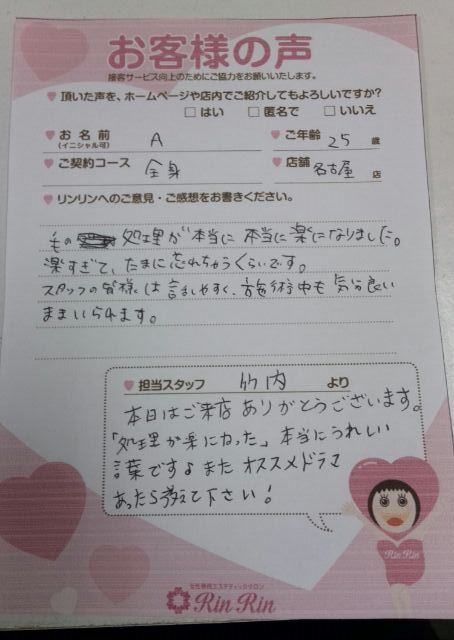 お客様の声
接客サービス向上のためにご協力をお願いいたします。
頂いた声を、ホームページや店内でご紹介してもよろしいですか?
□ はい □ 匿名で □ いいえ
お名前 (イニシャル可) A ご年齢 25 歳
ご契約コース 全身 店舗 名古屋 店
リンリンへのご意見・ご感想をお書きください。
毛の 処理が本当に本当に楽になりました。
楽すぎて、たまに忘れちゃうくらいです。
スタッフの皆様は話しやすく、施術中も気分良い
ままいられます。
担当スタッフ 竹内 より
本日はご来店ありがとうございます。
「処理が楽になった」本当にうれしい
言葉です♪またオススメドラマ
あったら教えて下さい!
Rin Rin
女性専用エステティックサロン
Rin Rin